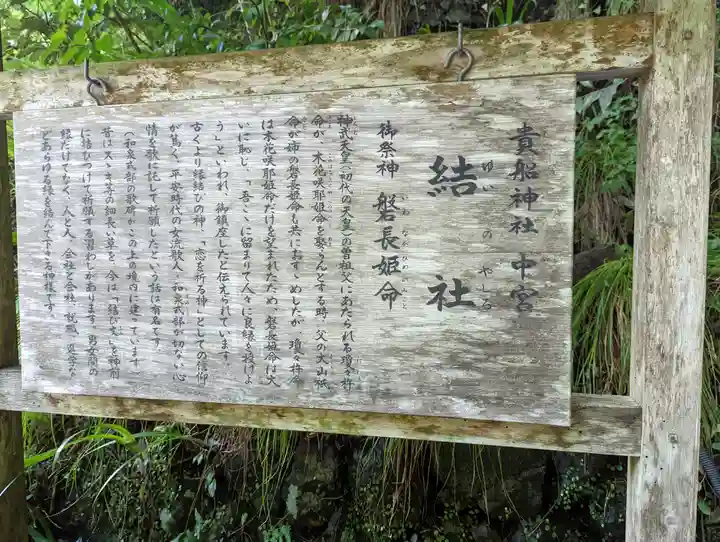 貴船神社 中宮
結社
ゆいのやしろ
御祭神 磐長姫命
いわながひめのみこと
神武天皇(初代の天皇)の曽祖父にあたられる瓊々杵
命が、木花咲耶姫命を娶らんとする時、父の大山祇
命が姉の磐長姫命も共におすゝめしたが、瓊々杵命
は木花咲耶姫命だけを望まれたため、磐長姫命は大
いに恥じ、「吾こゝに留まりて人々に良縁を授けよ
う」といわれ、御鎮座したと伝えられています。
古くより縁結びの神、「恋を祈る神」としての信仰
が篤く、平安時代の女流歌人・和泉式部が切ない心
情を歌に託して祈願したという話は有名です。
(和泉式部の歌碑がこの上の境内に建っています。)
昔はスヽキ等の細長い草を、今は「結び文」を神前
に結びつけて祈願する習わしがあります。男女間の
縁だけでなく、人と人、会社と会社、就職、進学な
どあらゆる縁を結んで下さる神様です。